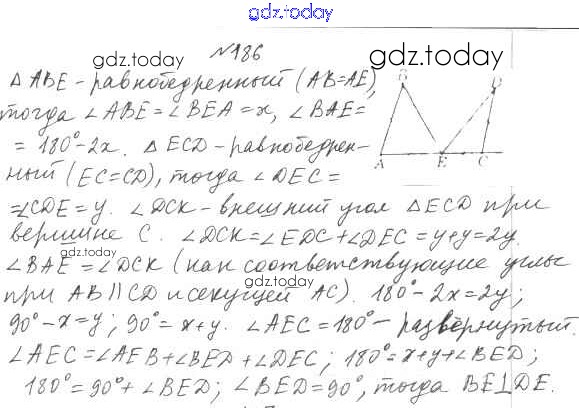 gdz.today
№186
gdz.today
gdz.today
△ ABE - равнобедренный (AB=AE),
тогда ∠ABE = ∠BEA = x, ∠BAE =
= 180° - 2x. △ ECD - равнобедрен-
ный (EC=CD), тогда ∠DEC =
= ∠CDE = y. ∠DCK - внешний угол △ECD при
вершине C. ∠DCK = ∠EDC + ∠DEC = y + y = 2y.
gdz.today
∠BAE = ∠DCK (как соответствующие углы
при AB || CD и секущей AC). 180° - 2x = 2y;
90° - x = y; 90° = x + y. ∠AEC = 180° - развёрнутый.
∠AEC = ∠AEB + ∠BED + ∠DEC; 180° = x + y + ∠BED;
180° = 90° + ∠BED; ∠BED = 90°, тогда BE⊥DE.
B
D
A
E
C